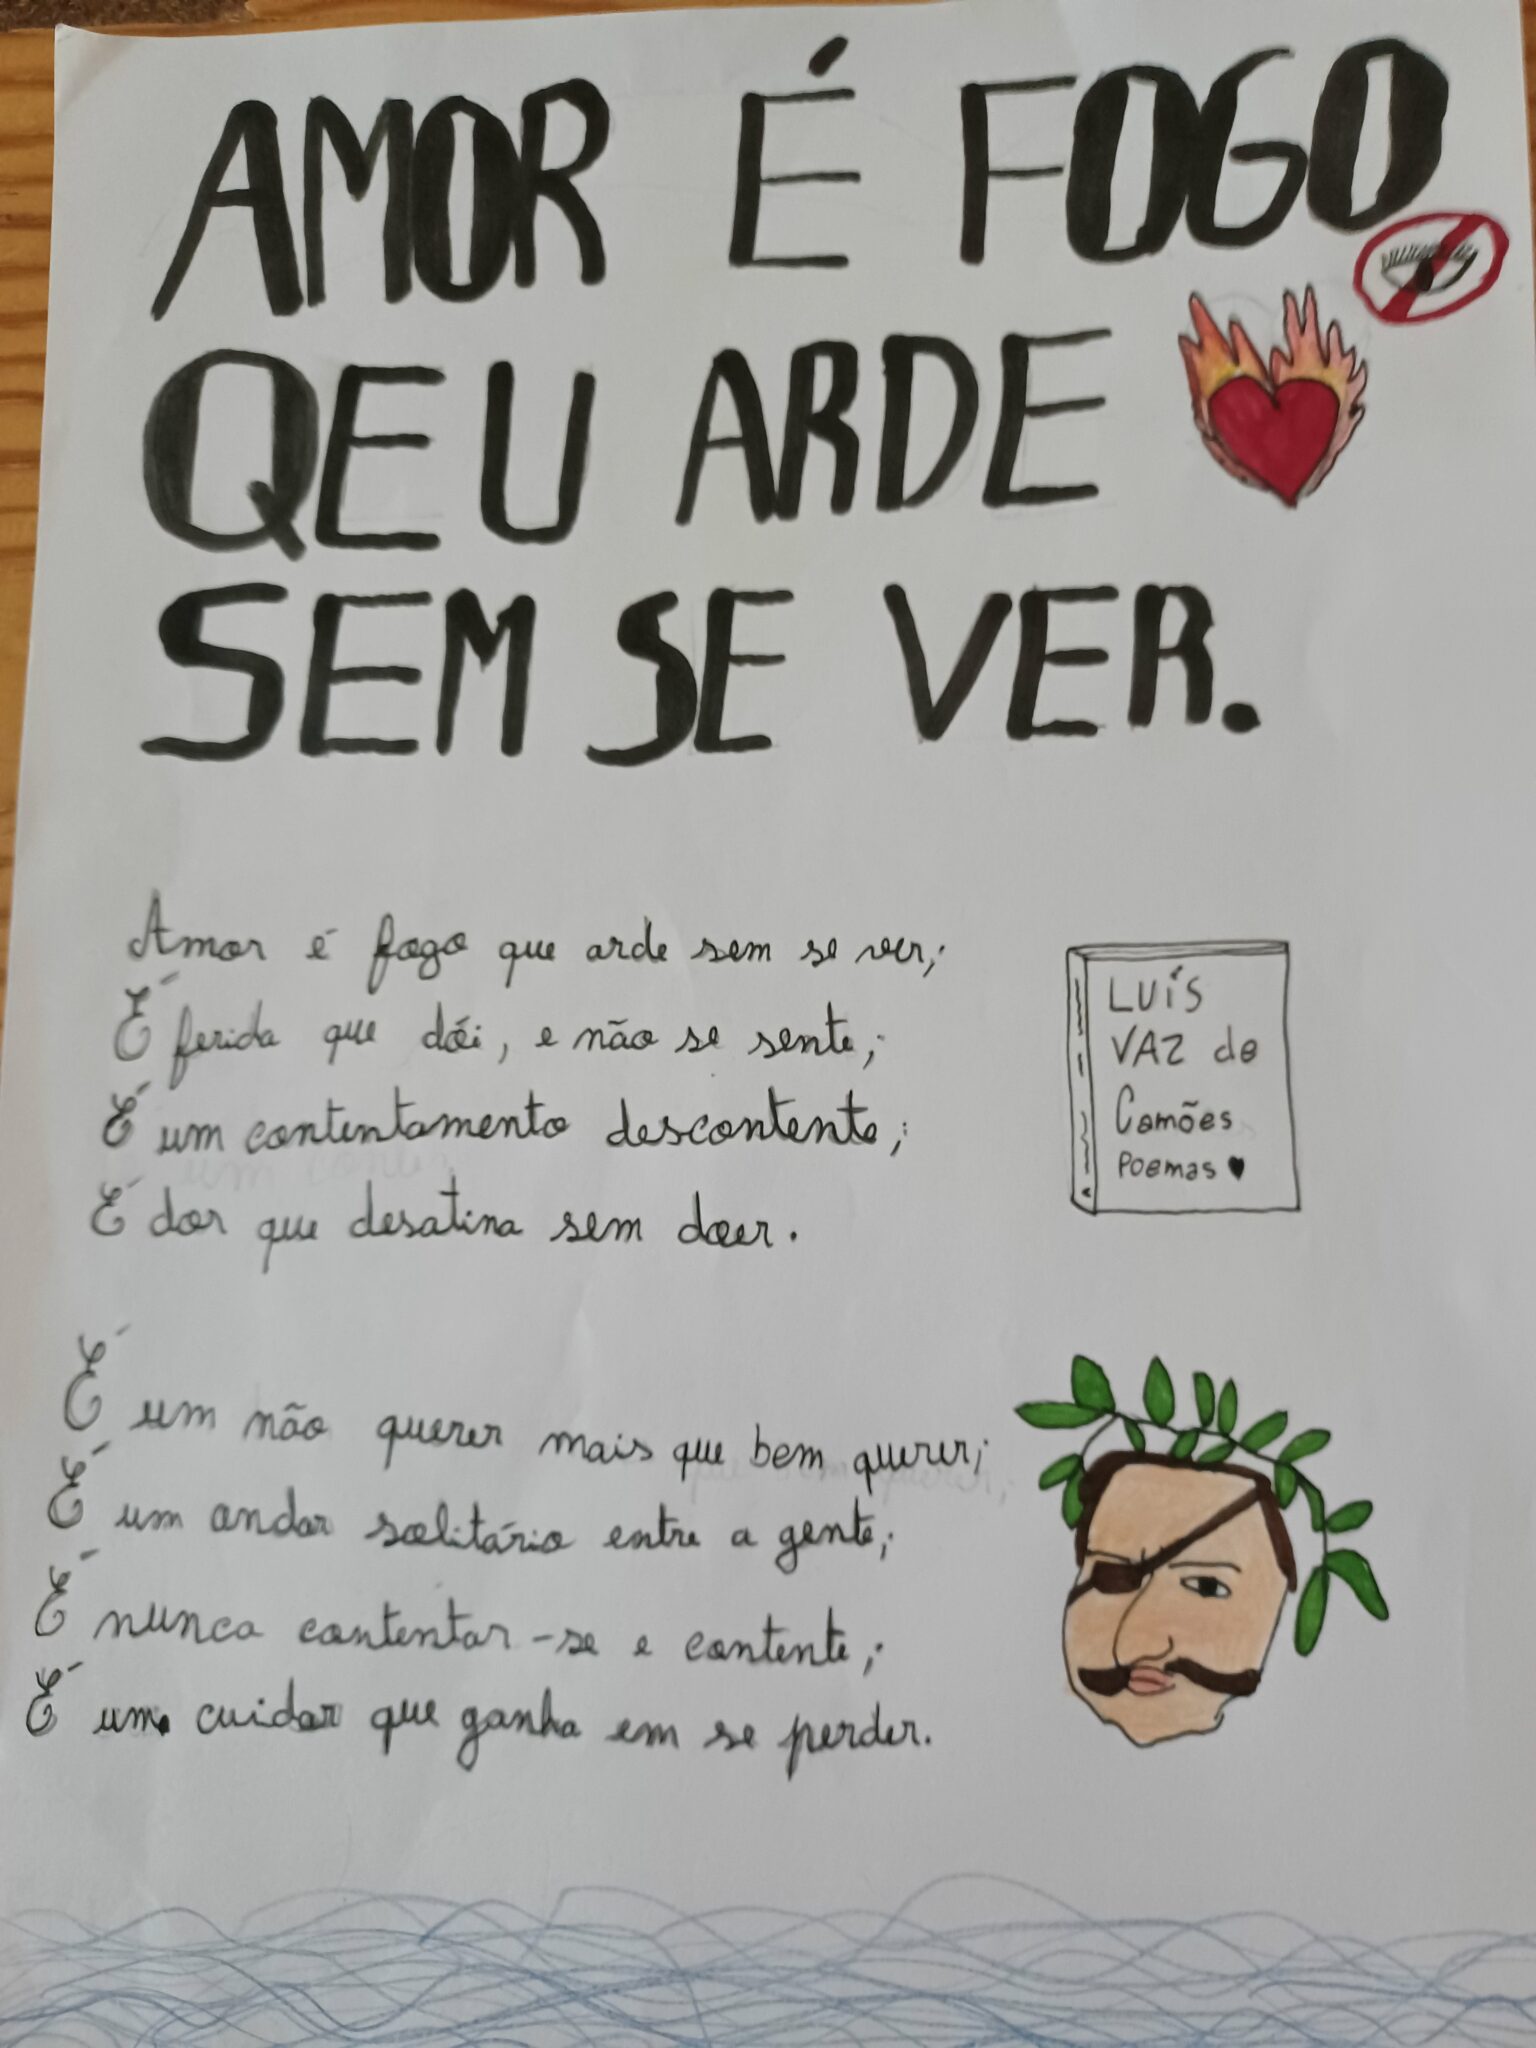 AMOR É FOGO
QEU ARDE
SEM SE VER.
Amor é fogo que arde sem se ver;
É ferida que dói, e não se sente;
É um contentamento descontente;
É dor que desatina sem doer.
LUÍS
VAZ de
Camões
Poemas
É um não querer mais que bem querer;
É um andar solitário entre a gente;
É nunca contentar-se e contente;
É um cuidar que ganha em se perder.